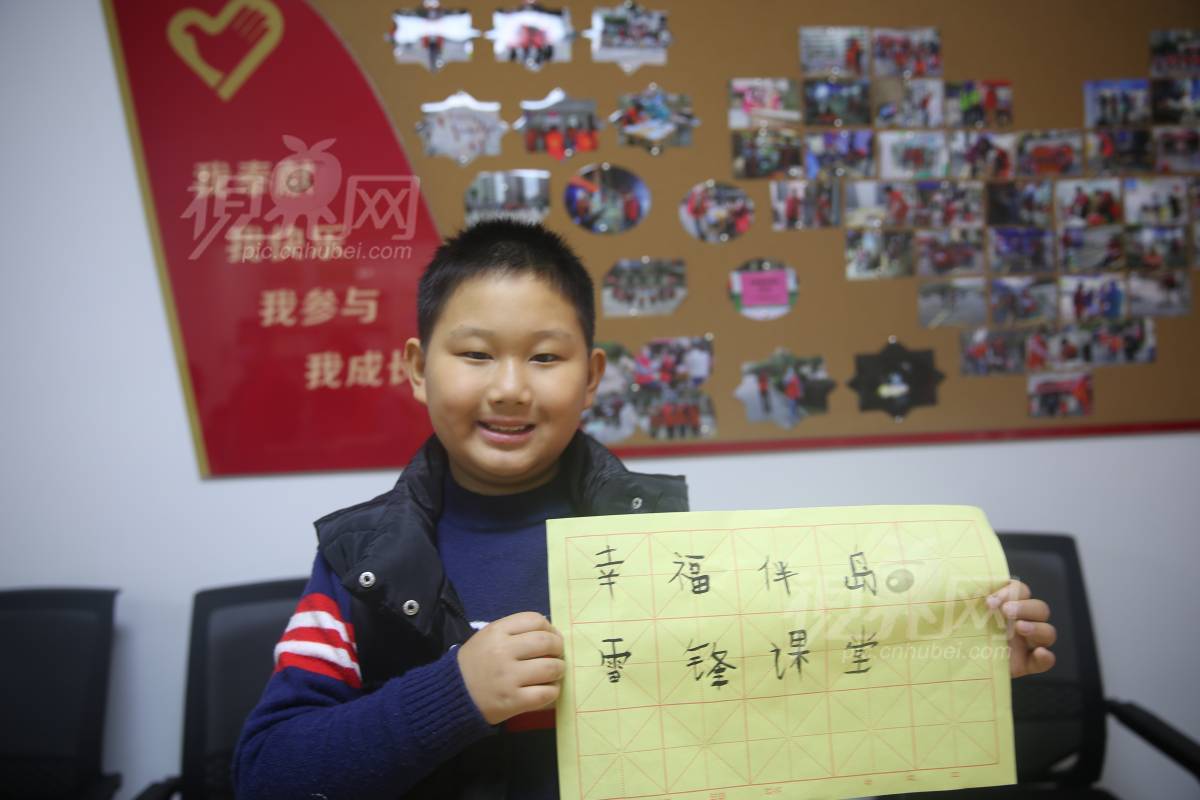 我奉献
我快乐
我参与
我成长
視界网
pic.cnhubei.com
幸福伴岛
雷锋课堂
視界网
pic.cnhubei.com